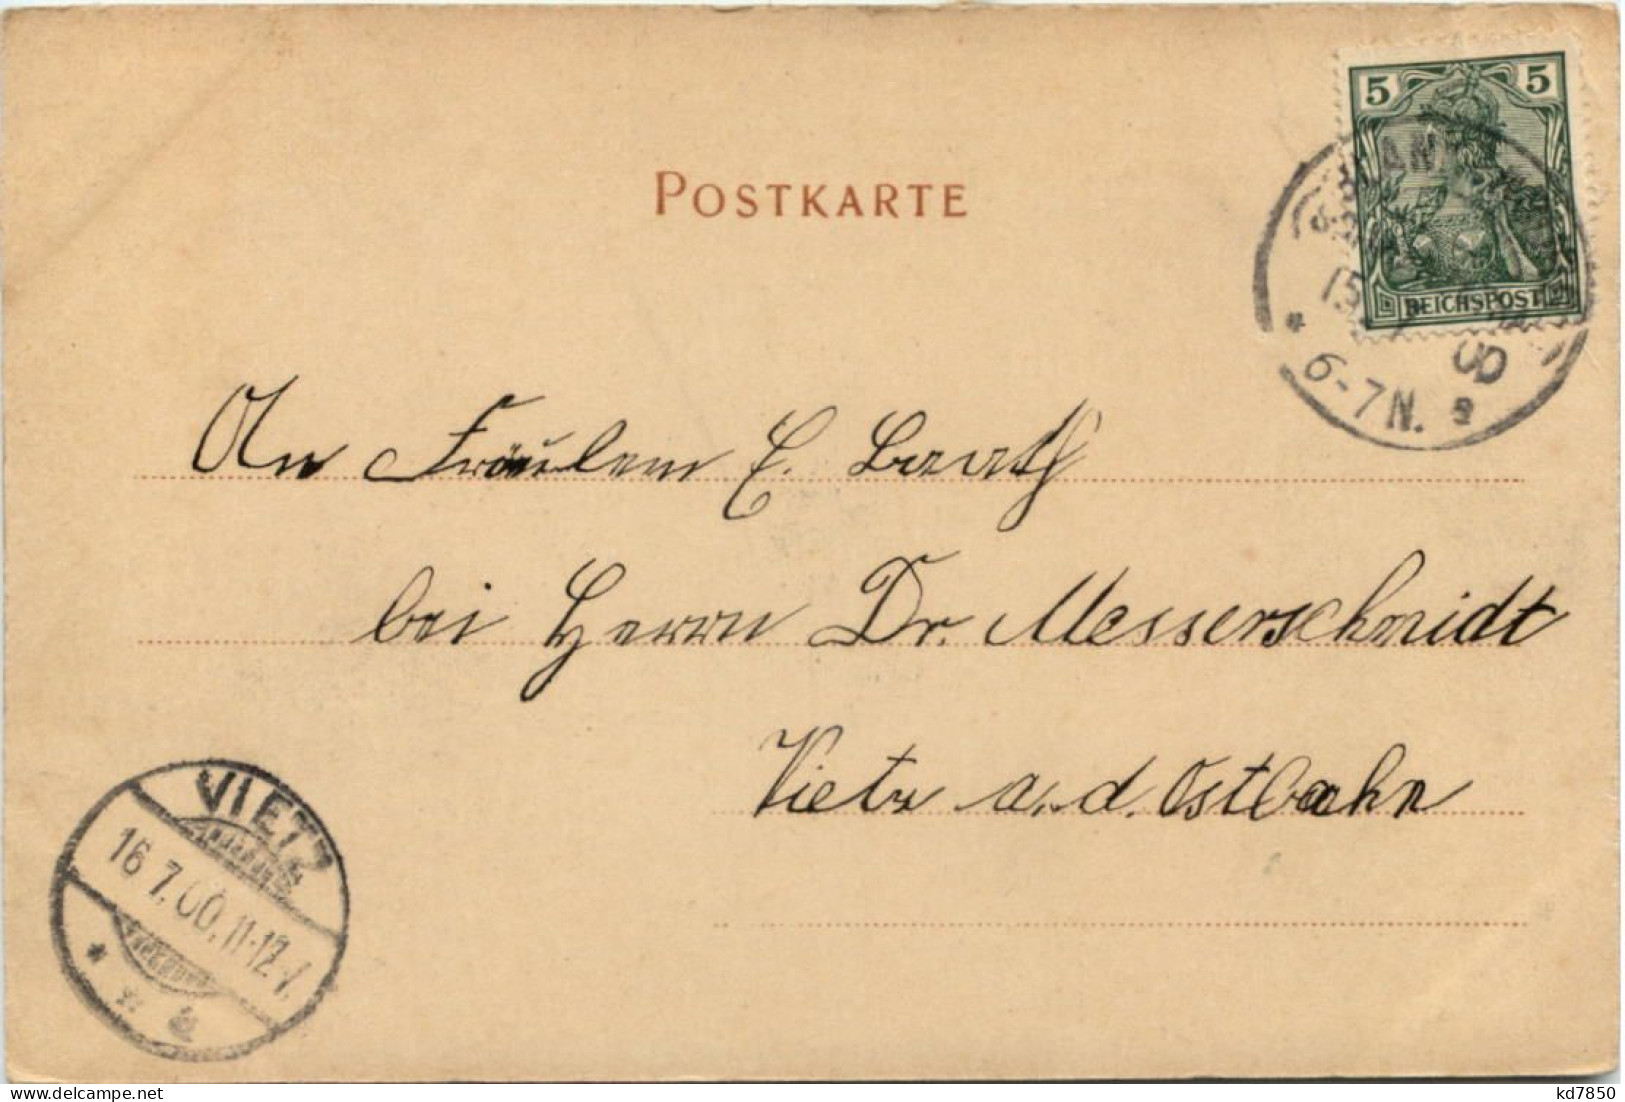 5 5
REICHSPOST
POSTKARTE
15 00
6-7N.
An Fräulein E. Baath
bei Herrn Dr. Messerschmidt
Vietz a. d. Ostbahn
VIETZ
16.7.00.11-12V.
www.delcampe.net
kd7850